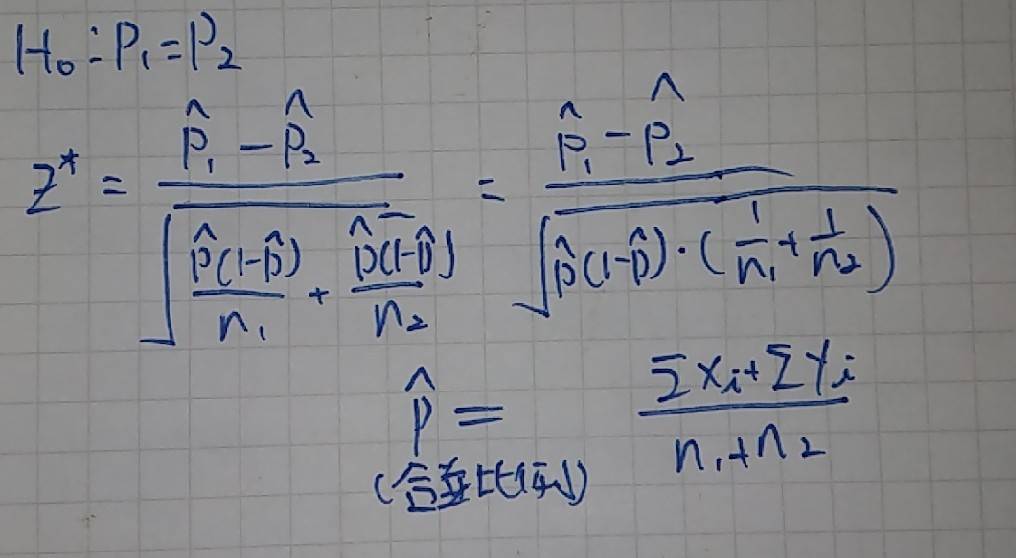 H₀:P₁=P₂
Z* = (P̂₁-P̂₂)/√(p̂(1-p̂)/n₁ + p̂(1-p̂)/n₂) = (P̂₁-P̂₂)/√(p̂(1-p̂)·(1/n₁+1/n₂))
p̂ = (Σxᵢ+ΣYᵢ)/(n₁+n₂)
(合並比例)